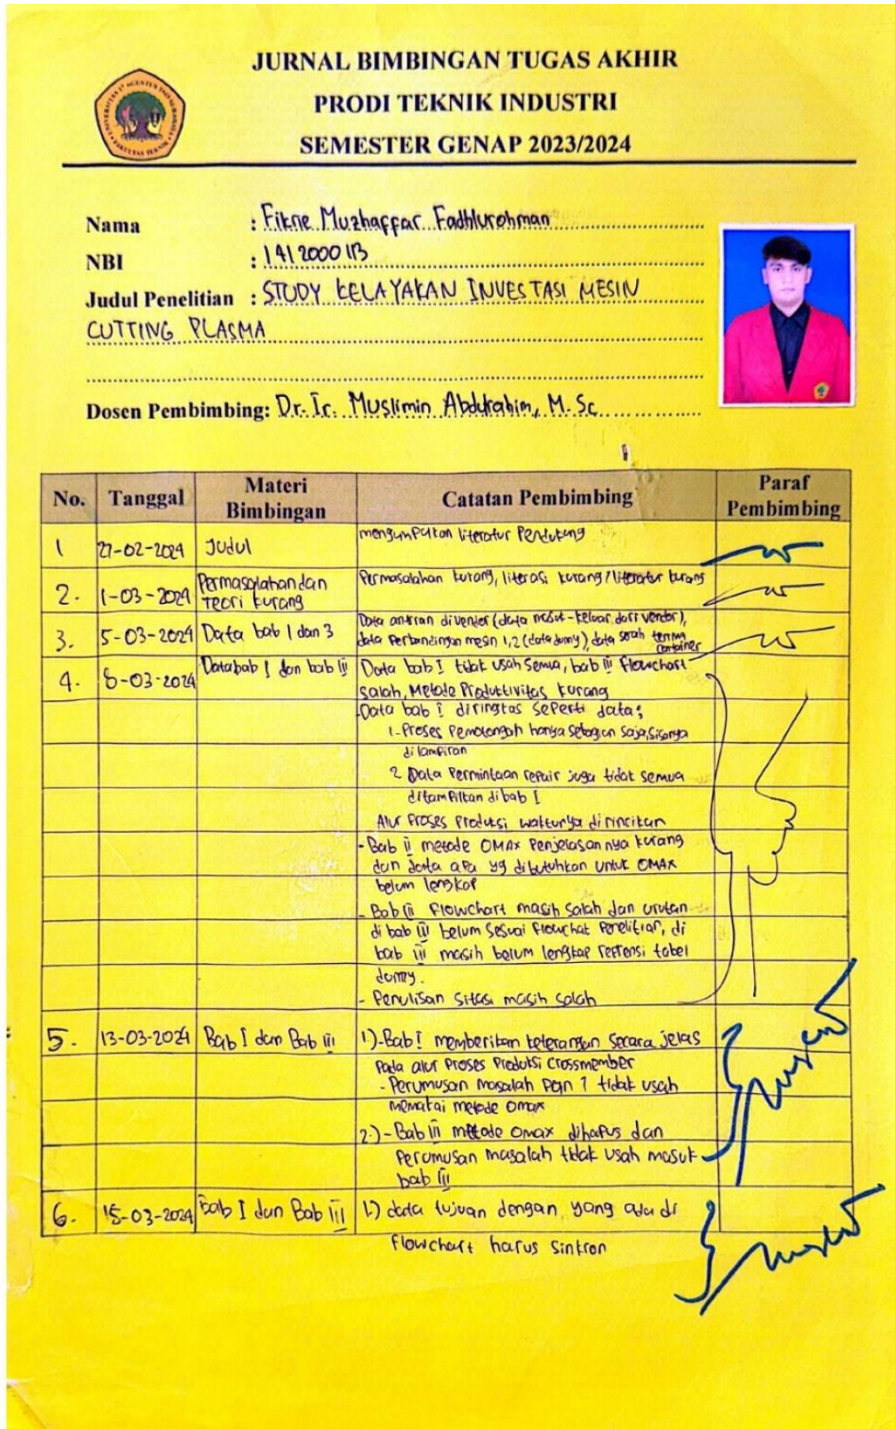 JURNAL BIMBINGAN TUGAS AKHIR
PRODI TEKNIK INDUSTRI
SEMESTER GENAP 2023/2024
Nama : Fikrie Muzhaffar Fadhlurohman
NBI : 1412000113
Judul Penelitian : STUDY KELAYAKAN INVESTASI MESIN
CUTTING PLASMA
Dosen Pembimbing: Dr. Ir. Muslimin Abdurahim, M. Sc
No. Tanggal Materi Bimbingan Catatan Pembimbing Paraf Pembimbing
1 27-02-2024 Judul mengumpulkan literatur Pendukung
2. 1-03-2024 Permasalahan dan Permasalahan kurang, literasi kurang / literatur kurang
teori kurang
3. 5-03-2024 Data bab 1 dan 3 Data antrian di vendor (data masuk-keluar dari vendor),
data Perbandingan mesin 1,2 (data dumy), data serah terima
container
4. 8-03-2024 Data bab I dan bab III Data bab I tidak usah semua, bab III Flowchart
salah, Metode Produktivitas kurang
-Data bab I diringkas seperti data;
1. Proses Pemotongan hanya sebagian saja, sisanya
di lampiran
2 Data Permintaan repair juga tidak semua
ditampilkan di bab I
Alur Proses Produksi waktunya dirincikan
- Bab II metode OMAX Penjelasannya kurang
dan data apa yg dibutuhkan untuk OMAX
belum lengkap
- Bab III Flowchart masih salah dan urutan
di bab III belum sesuai Flowchat Penelitian, di
bab III masih belum lengkap refrensi tabel
dumy.
- Penulisan sitasi masih salah
5. 13-03-2024 Bab I dan Bab III 1.)-Bab I memberikan keterangan secara jelas
Pada alur Proses Produksi Crossmember
- Perumusan masalah Poin 1 tidak usah
memakai metode omax
2.)-Bab III metode omax dihapus dan
Perumusan masalah tidak usah masuk
bab III
6. 15-03-2024 Bab I dan Bab III 1.) data tujuan dengan yang ada di
Flowchart harus sinkron